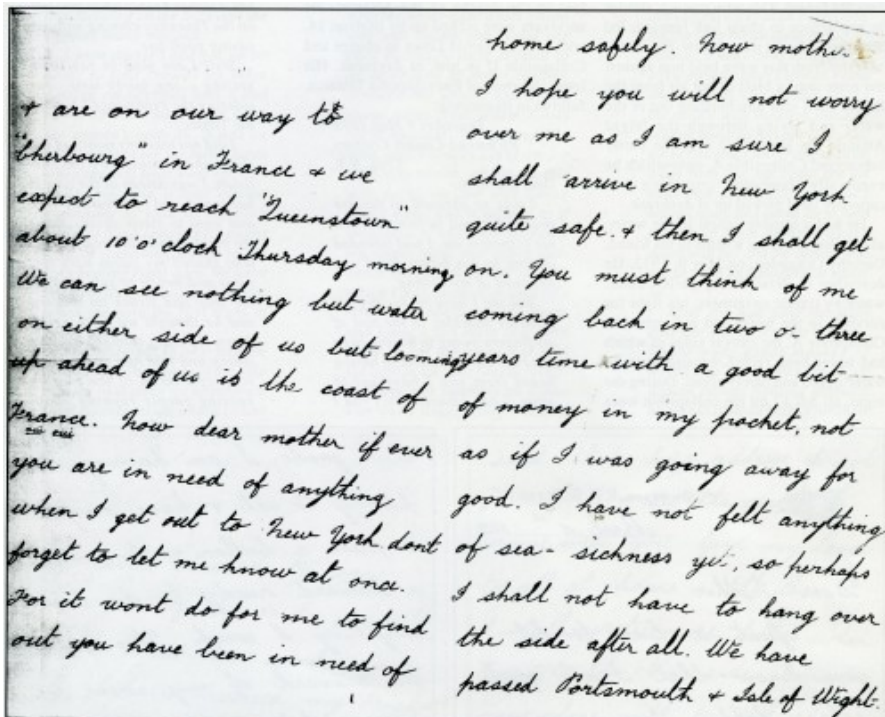 & are on our way to
"Cherbourg" in France & we
expect to reach "Queenstown"
about 10 o'clock Thursday morning
We can see nothing but water
on either side of us but looming
up ahead of us is the coast of
France. Now dear mother if ever
you are in need of anything
when I get out to New York dont
forget to let me know at once.
For it wont do for me to find
out you have been in need of
home safely. Now mother
I hope you will not worry
over me as I am sure I
shall arrive in New York
quite safe. & then I shall get
on. You must think of me
coming back in two or three
years time with a good bit
of money in my pocket, not
as if I was going away for
good. I have not felt anything
of sea-sickness yet, so perhaps
I shall not have to hang over
the side after all. We have
passed Portsmouth & Isle of Wight.